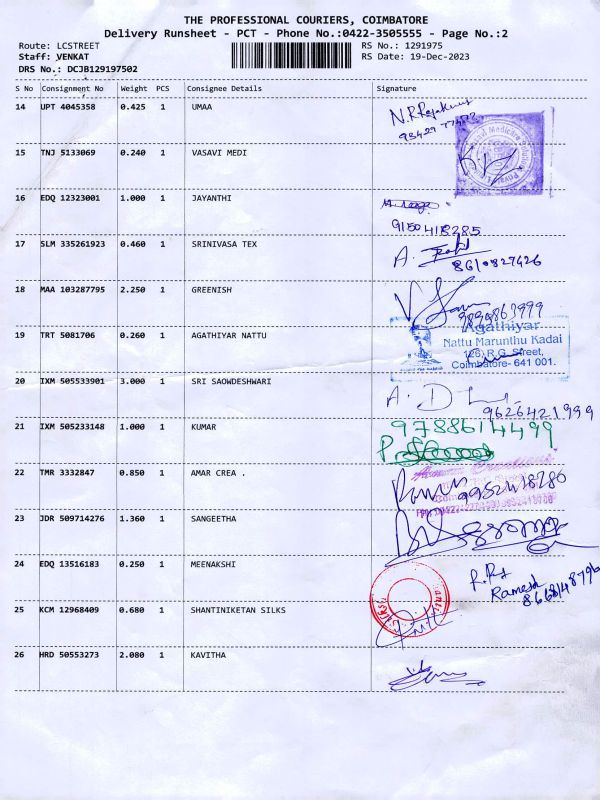 THE PROFESSIONAL COURIERS, COIMBATORE
Delivery Runsheet - PCT - Phone No.:0422-3505555 - Page No.:2
Route: LCSTREET RS No.: 1291975
Staff: VENKAT RS Date: 19-Dec-2023
DRS No.: DCJB129197502
S No Consignment No Weight PCS Consignee Details Signature
14 UPT 4045358 0.425 1 UMAA
15 TNJ 5133069 0.240 1 VASAVI MEDI
16 EDQ 12323001 1.000 1 JAYANTHI
9150418285
17 SLM 335261923 0.460 1 SRINIVASA TEX
8610827426
18 MAA 103287795 2.250 1 GREENISH
9894863999
19 TRT 5081706 0.260 1 AGATHIYAR NATTU
Agathiyar
Nattu Marunthu Kadai
126, R.G. Street,
Coimbatore- 641 001.
20 IXM 505533901 3.000 1 SRI SAOWDESHWARI
9626421999
21 IXM 505233148 1.000 1 KUMAR
9788614499
22 TMR 3332847 0.850 1 AMAR CREA .
9952418780
23 JDR 509714276 1.360 1 SANGEETHA
24 EDQ 13516183 0.250 1 MEENAKSHI
Ramesh
8668148796
25 KCM 12968409 0.680 1 SHANTINIKETAN SILKS
26 HRD 50553273 2.080 1 KAVITHA